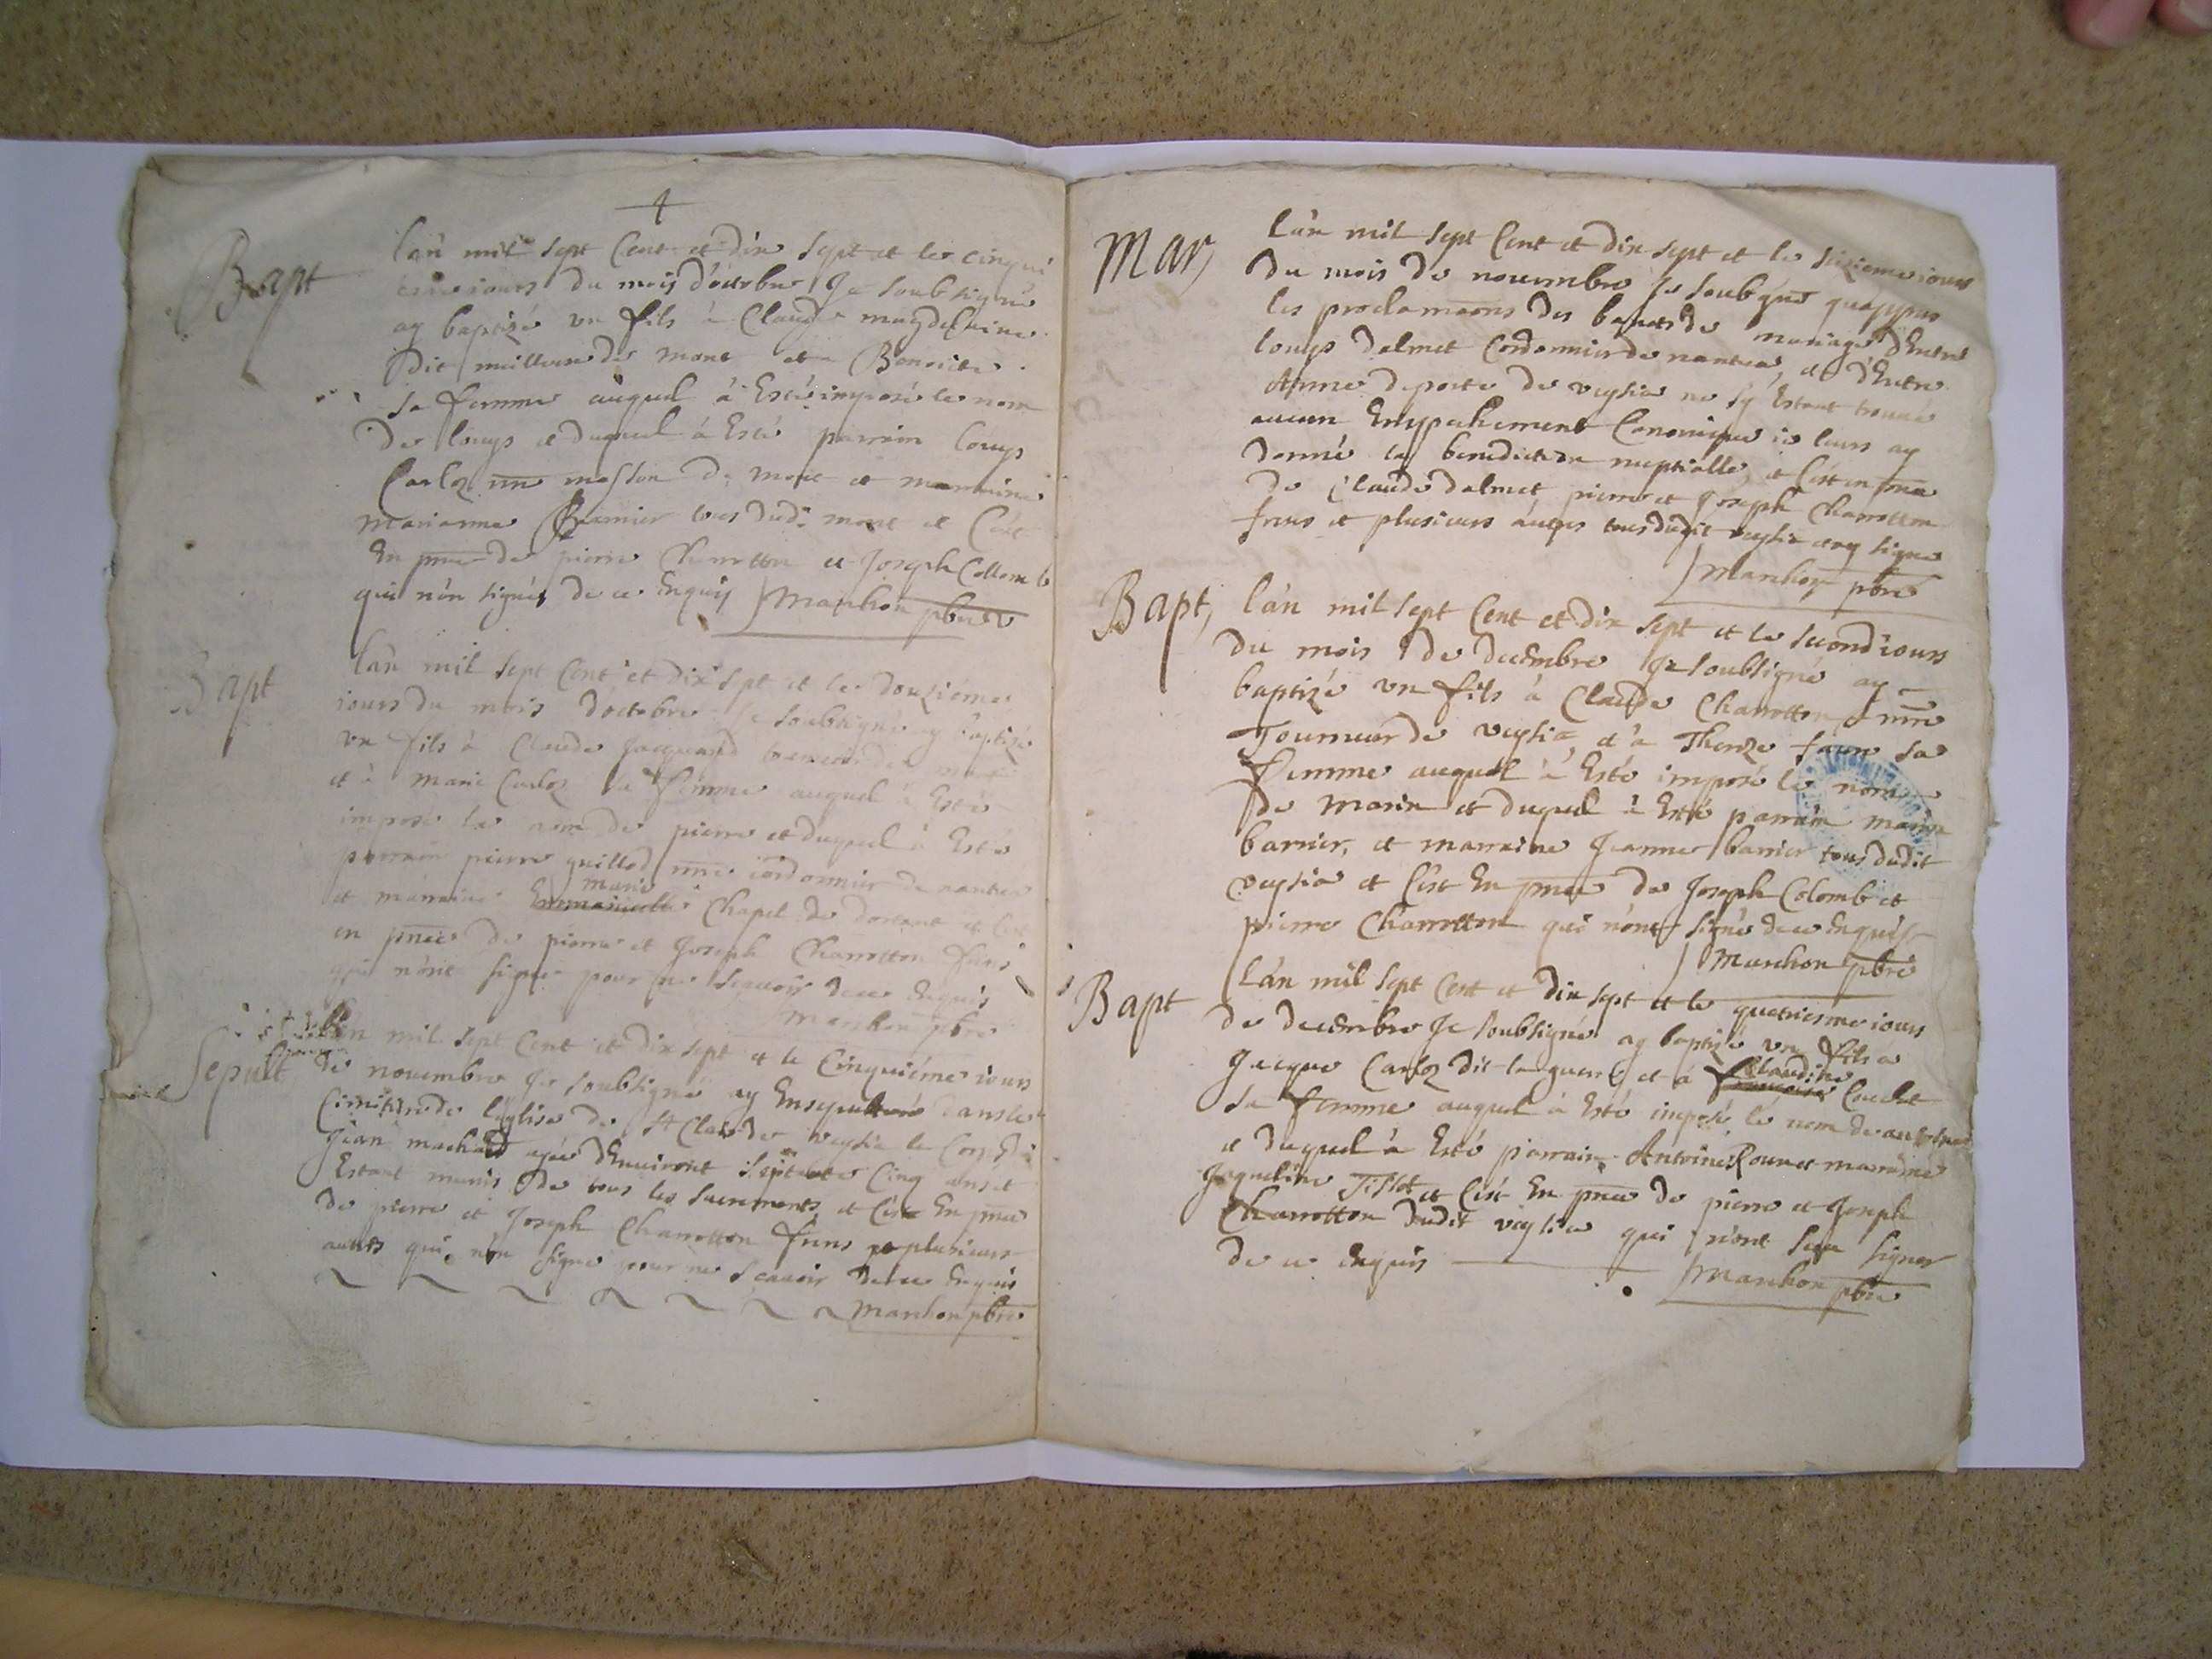 4
Bapt
lan mil sept Cent et dix sept et le cinqui
esme iours du mois d'octobre Je soubsigné
ay baptizé un fils à Claude magdelaine
dit meilleur de mont et a Benoitte
sa femme auquel à Esté imposé le nom
de louys et duquel à Esté parrain louys
Carloz me masson de mont et marraine
marianne Barnier tous dud. mont et C'est
En pnce de pierre Charrotton et Joseph Collomb
qui n'on signés de ce Enquis Marchon pbre
Bapt
lan mil sept Cent et dix sept et le douziéme
iours du mois d'octobre Je soubsigné ay baptizé
un fils à Claude Jacquand de
et à marie Carloz sa femme auquel à Esté
imposé le nom de pierre et duquel à Esté
parrain pierre guilled me cordonnier de nantua
et marraine Emmanuelle marie Chapel de dortant et C'est
en pnce de pierre et Joseph Charrotton freres
qui n'ont signé pour ne sçavoir de ce Enquis
Marchon pbre
Sepult
lan mil sept Cent et dix sept et le Cinquiéme iours
de novembre Je soubsigné ay Ensepulturé dans le
Cimitiere de l'église de St Claude veysia le Corps de
Jean machard agée d'Environt septante Cinq ans et
Estant munis de tous les sacrements et C'est En pnce
de pierre et Joseph Charrotton freres et plusieurs
autres qui n'on signé pour ne sçavoir de ce Enquis
Marchon pbre
Mar,
lan mil sept Cent et dix sept et le sizieme iours
du mois de novembre je soubsigné qu'appres
les proclamaons des bancts de mariage d'Entre
louys dalmet Cordonnier de nantua, et d'Entre
Anne deporte de veysia ne sy Estant trouvé
aucun Empechement Canonique ie leurs ay
donné la benediction nuptialle, et C'est en pnce
de Claude dalmet pierre et Joseph Charrotton
freres et plusieurs autres tous dudit veysia et ay signe
Marchon pbre
Bapt,
l'an mil sept Cent et dix sept et le second iours
du mois de decembre Je soubsigné ay
baptizé un fils à Claude Charrotton me
Tourneur de veysia et à Thereze favre sa
femme auquel à Esté imposé le nom
de marin et duquel à Esté parrain marin
barrier, et marraine Jeanne barrier tous dudit
veysia et C'est En pnce de Joseph Colomb et
pierre Charrotton qui n'ont signé de ce Enquis
Marchon pbre
Bapt
L'an mil sept Cent et dix sept et le quatriesme iours
de decembre Je soubsigné ay baptizé un fils à
Jacque Carloz dit la guerre et à francoise Claudine Couchet
sa femme auquel à Esté imposé le nom de anthoine
et duquel à Esté parrain Antoine Roux et marraine
Jaqueline Tissot et C'est En pnce de pierre et Joseph
Charrotton dudit veysia qui n'ont sceu signer
de ce Enquis
Marchon pbre